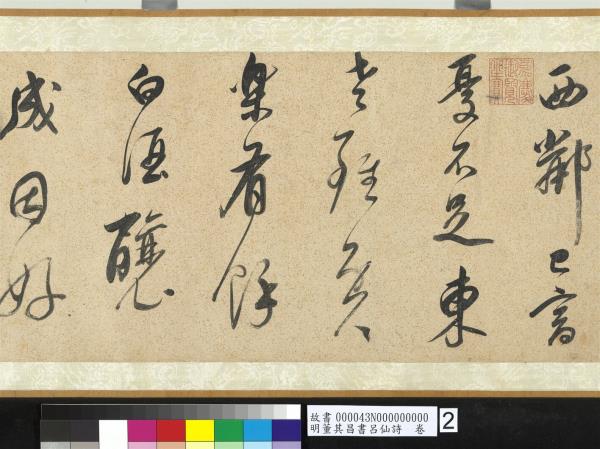 西鄰已富
憂不足東
老雖貧
樂有餘
白酒釀
成因好
故書 000043N000000000
明董其昌書呂仙詩 卷
2